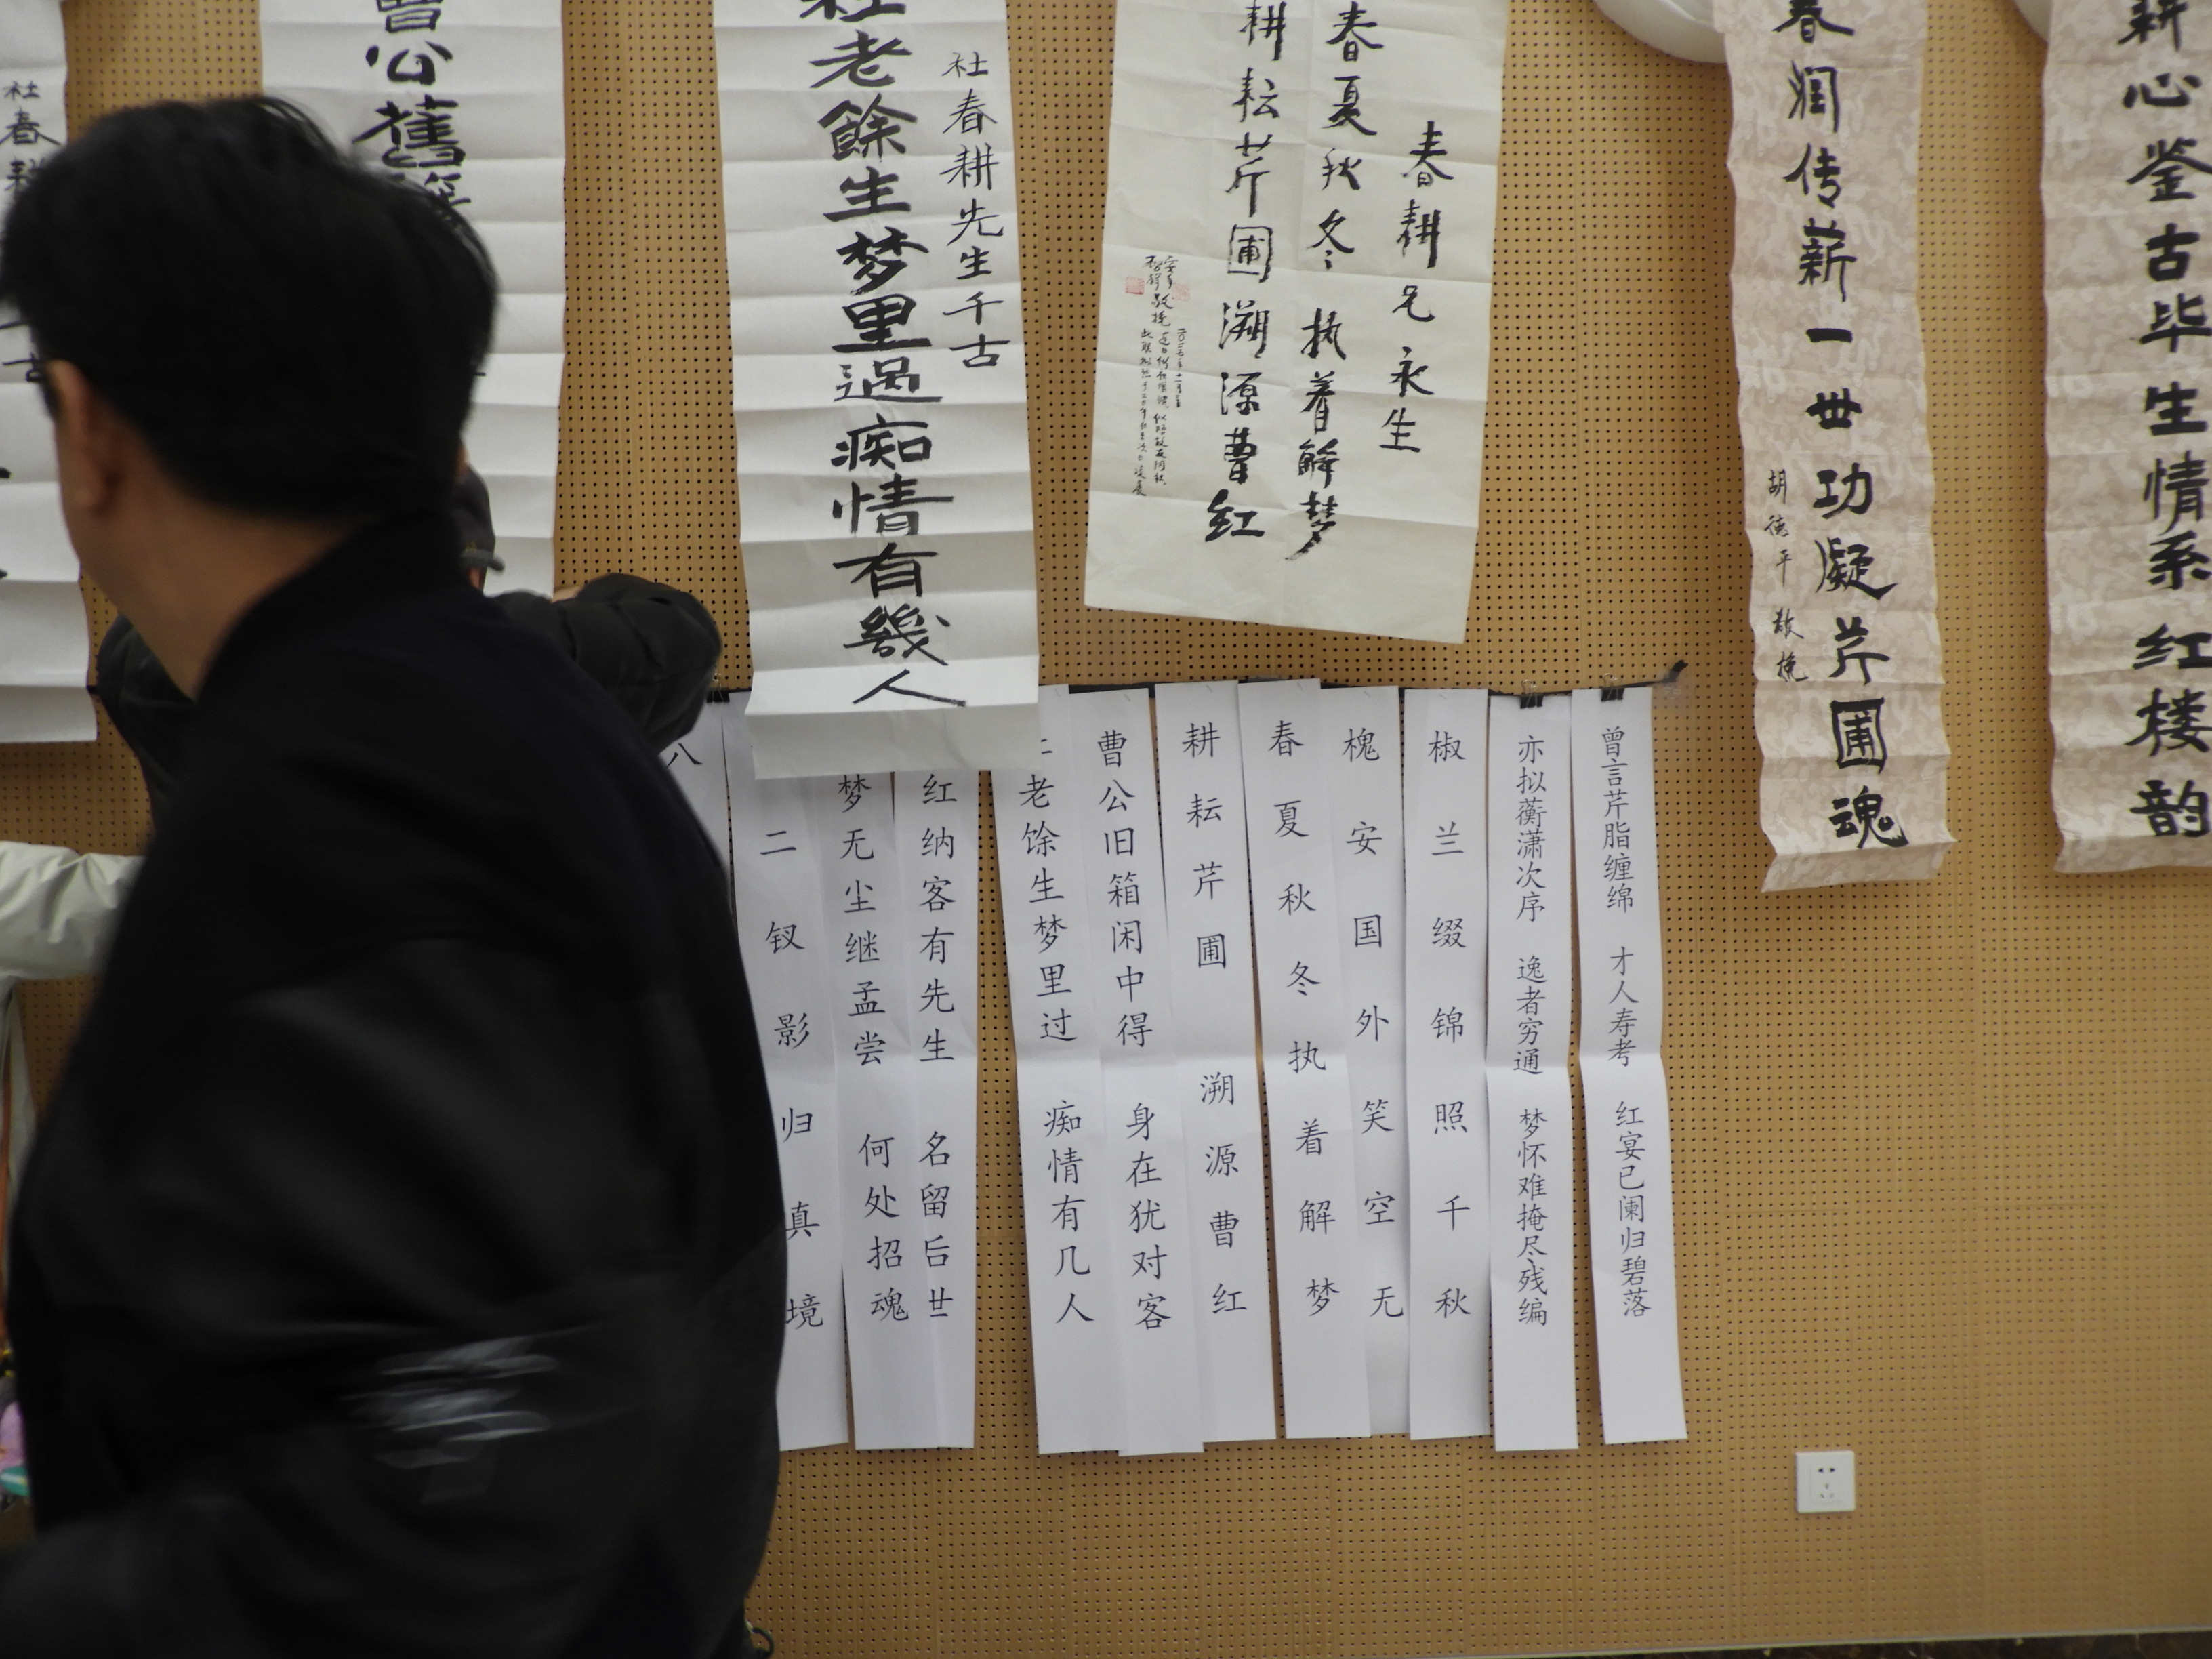 耕心鉴古毕生情系红楼韵
春润传薪一世功凝芹圃魂
胡德平敬挽
春耕兄永生
春夏秋冬执着解梦
耕耘芹圃溯源曹红
杜春耕先生千古
杜老餘生梦里過痴情有幾人
曹公舊
杜春耕
曾言芹脂缠绵 才人寿考 红宴已阑归碧落
亦拟蘅潇次序 逸者穷通 梦怀难掩尽残编
椒兰缀锦照千秋
槐安国外笑空无
春夏秋冬执着解梦
耕耘芹圃 溯源曹红
曹公旧箱闲中得 身在犹对客
老馀生梦里过 痴情有几人
红纳客有先生 名留后世
梦无尘继孟尝 何处招魂
二钗影归真境
八